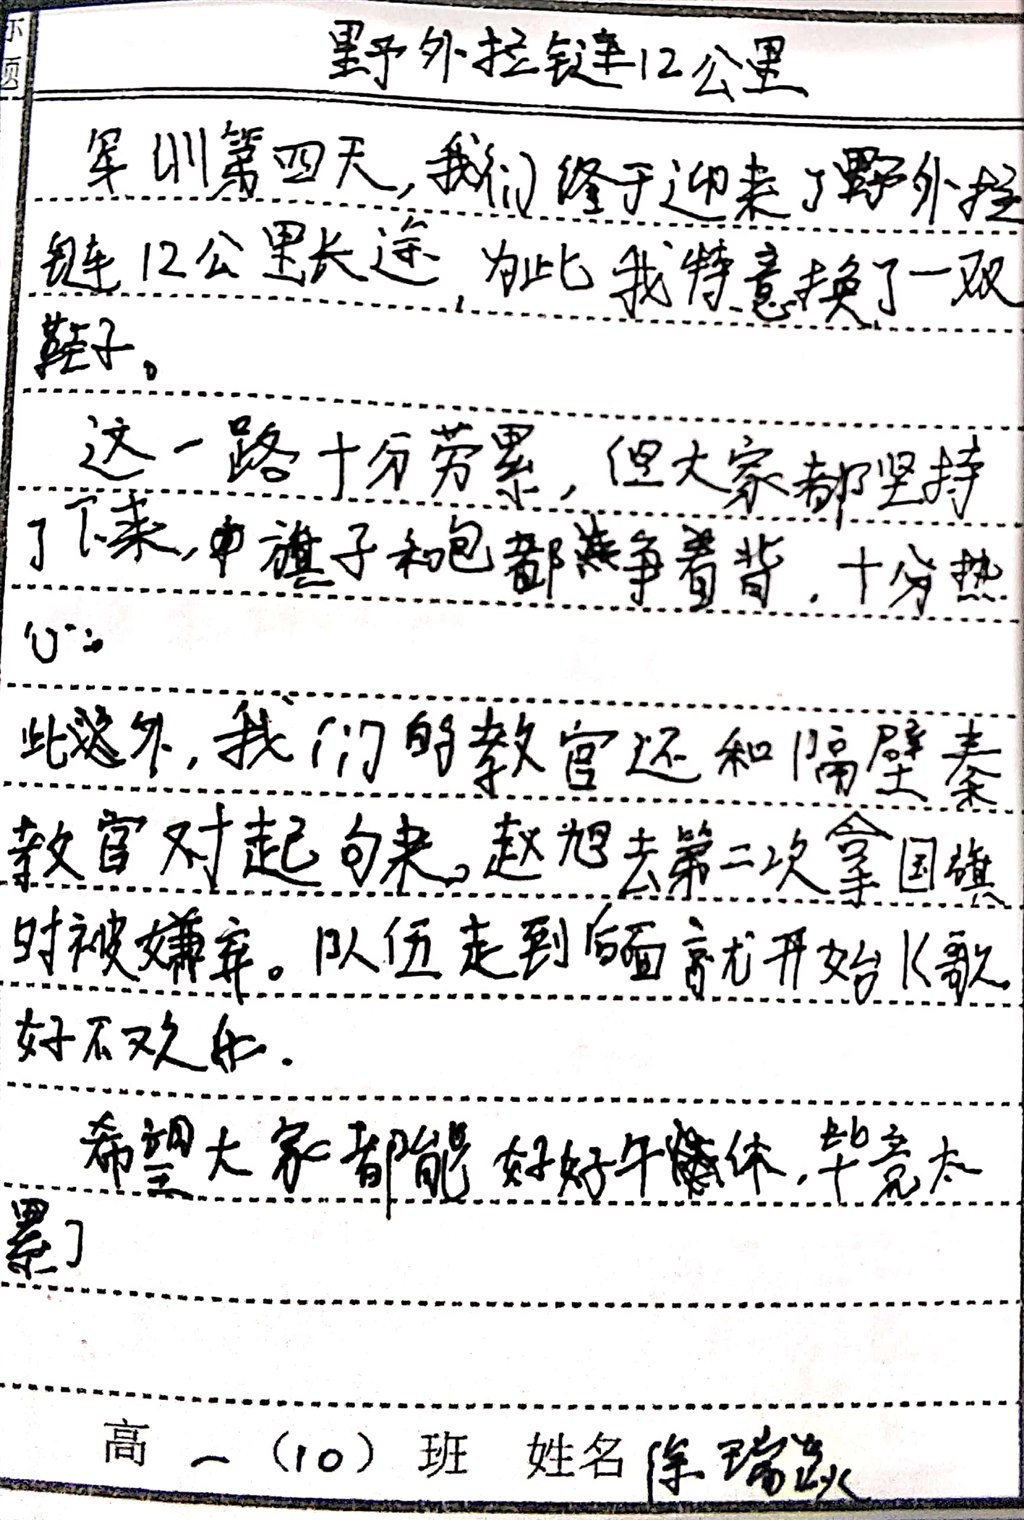 标题
野外拉链12公里
军训第四天,我们终于迎来了野外拉
链12公里长途,为此我特意换了一双
鞋子。
这一路十分劳累,但大家都坚持
了下来,旗子和包都争着背,十分热
心。
此外,我们的教官还和隔壁秦
教官对起句来。赵旭去第二次拿国旗
时被嫌弃。队伍走到后面就开始K歌。
好不欢乐.
希望大家都能好好午休,毕竟太
累了
高一(10)班 姓名徐瑞